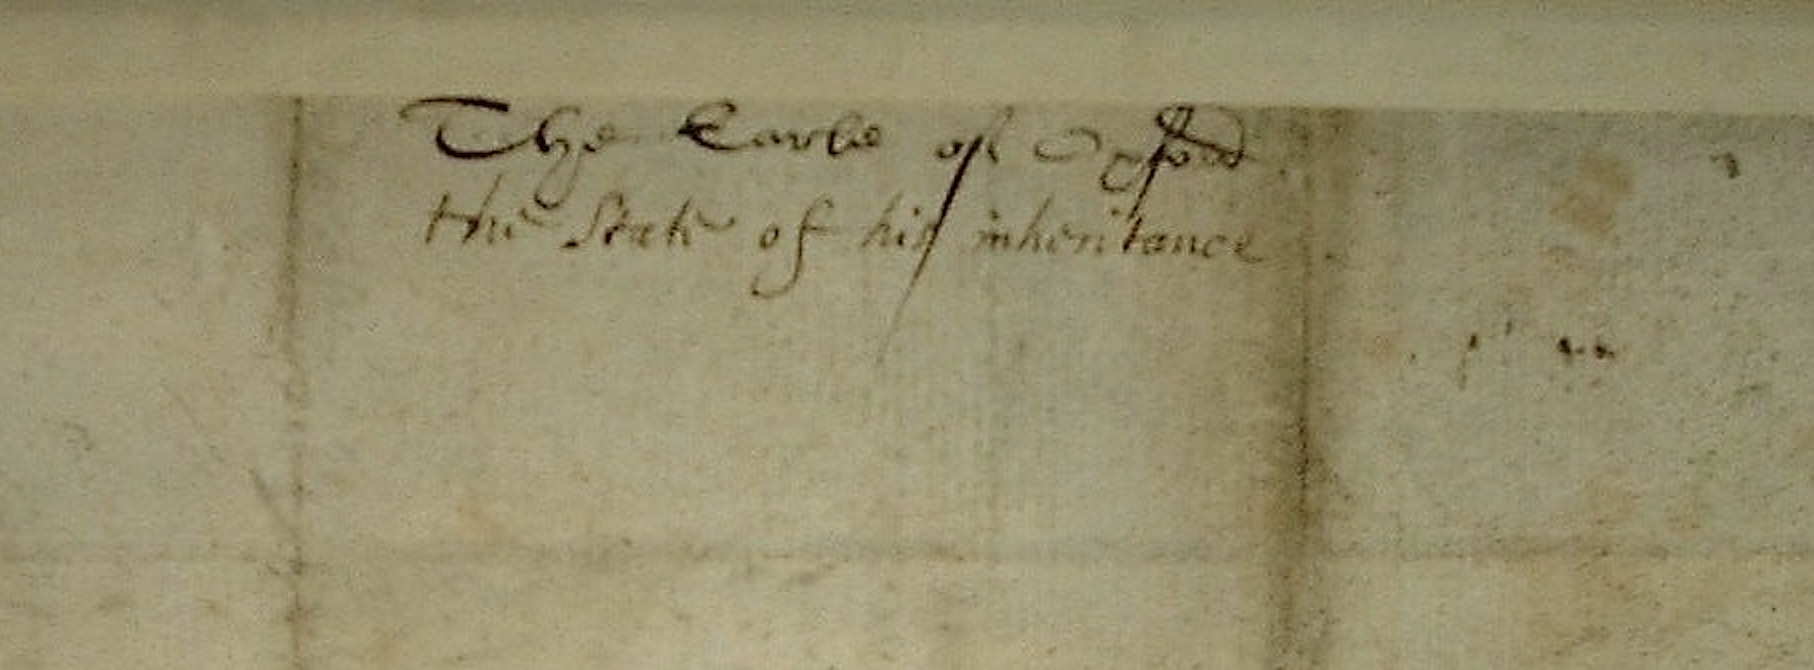 The Earle of Oxford
the State of his inheritance